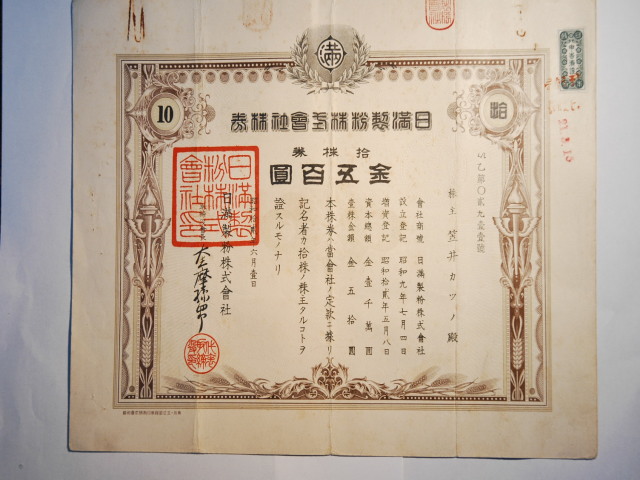 満
日満製粉株式會社株券
拾株券
金五百圓
10
拾
乙第〇貳九壹壹號
株主 笠井カツノ殿
會社商號 日満製粉株式會社
設立登記 昭和九年七月四日
増資登記 昭和拾貳年五月八日
資本總額 金壹千萬圓
壹株金額 金五拾圓
本株券ハ當會社ノ定款ニ據リ
記名者カ拾株ノ株主タルコトヲ
證スルモノナリ
六月壹日
日満製粉株式會社
日満製
粉株式
會社印